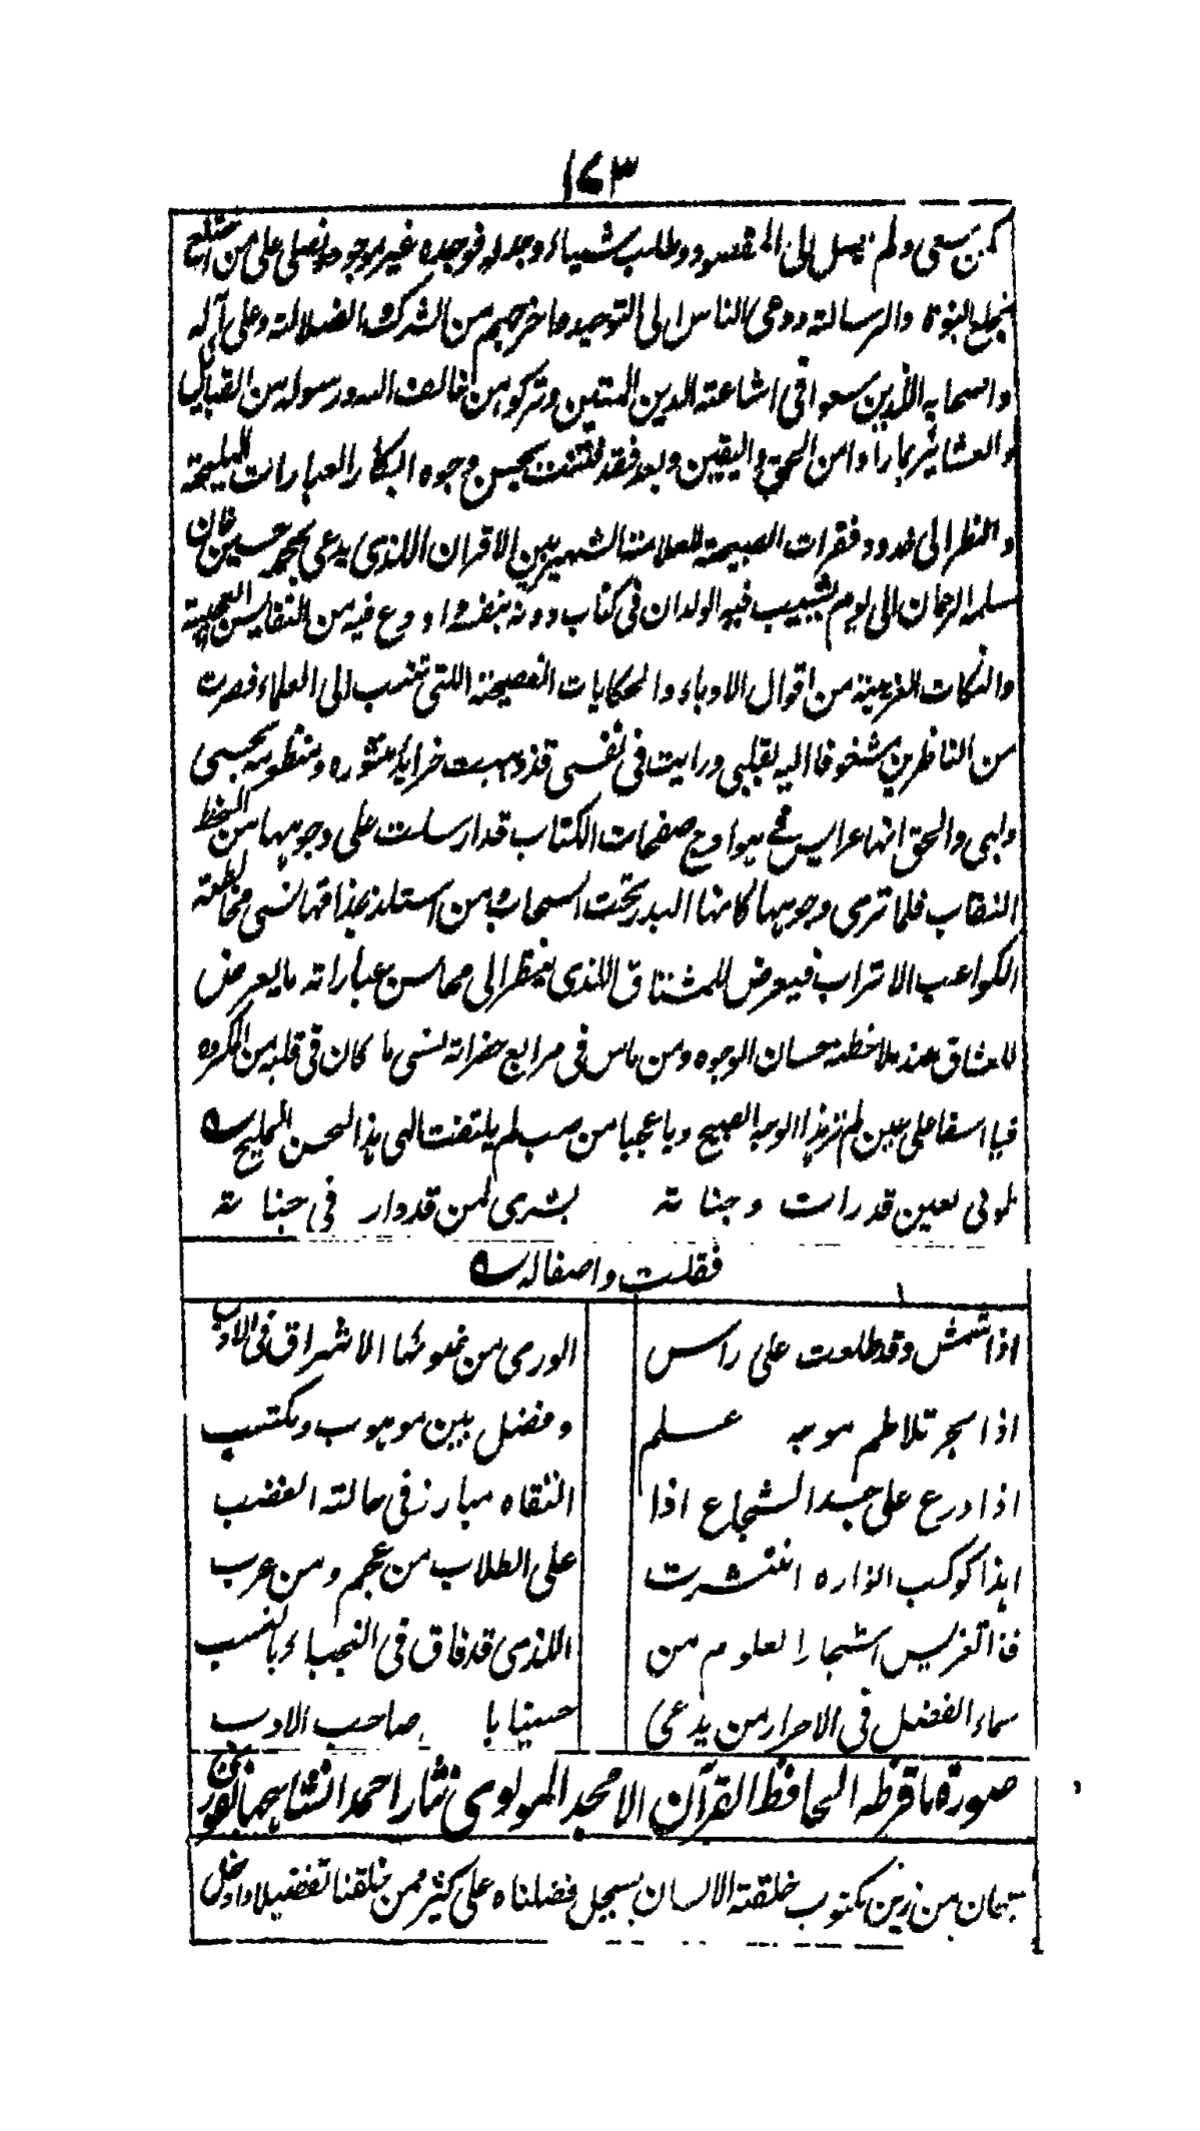 ١٧٣
كمن سعى ولم يصل الى المقصود وطلب شيئاء وجد له فوجده غير موجود ونصلى على من اختلع
بخلع النبوة والرسالة ودعى الناس الى التوحيد واخرجهم من الشرك والضلالة وعلى آله
واصحابه الذين سعوا فى اشاعة الدين المتين وتركوا من خالف الله ورسوله من القبايل
والعشاير بما راوا من الحق واليقين وبعد فقد تشنفت بحسن وجوه ابكار العبارات المليحة
والنظر الى خدود فقرات الصبيحة للعلامة الشهير بين الاقران اللذى يدعى بمحمد حسين خان
سلمه الرحمان الى يوم يشيب فيه الولدان فى كتاب دونه بنفسه واودع فيه من النفايس العجيبة
والنكات الغريبة من اقوال الادباء والحكايات الفصيحة اللتى تنسب الى العلماء فصرت
من الناظرين مشغوفا اليه بقلبى ورايت فى نفسى قد ذهبت خرايد منثوره ومنظومه بحبى
ولبى والحق انها عرايس فى هوادج صفحات الكتاب قد ارسلت على وجوهها من الخط
النقاب فلما ترى وجوهها كانها البدر تحت السحاب من استلذ بمذاقها نسى مخالطة
الكواعب الاتراب فيعرض للمشتاق اللذى ينظر الى محاسن عباراته ما يعرض
للعشاق عند ملاحظة حسان الوجوه ومن ماس فى مرابع حضراته نسى ما كان فى قلبه من المكروه
فيا اسفا على عين لم تر هذا الوجه الصبيح ويا عجبا من صب لم يلتفت الى هذا الحسن المليح
طوبى لعين قد رات وجناته بشرى لمن قد دار فى جناته
فقلت واصفا له
اذا شمش وقد طلعت على راس الورى من ضوئها الاشراق فى الادب
اذا بحر تلاطم موجه علم وفضل بين موهوب ومكتسب
اذا درع على جسد الشجاع اذا التقاه مبارز فى حالة الغضب
اهذا كوكب انواره انتشرت على الطلاب من عجم ومن عرب
فذا تغريس اشجار العلوم من اللذى قد فاق فى النجباء بالنسب
سماء الفضل فى الاحرار من يدعى حسينا با صاحب الادب
صورة ما قرظه الحافظ القرآن الامجد المولوى نثار احمد الشاهجهانفورى
سبحان من زين مكتوب خلقة الانسان بسجل فضلناه على كثير ممن خلقنا تفضيلا وادخل